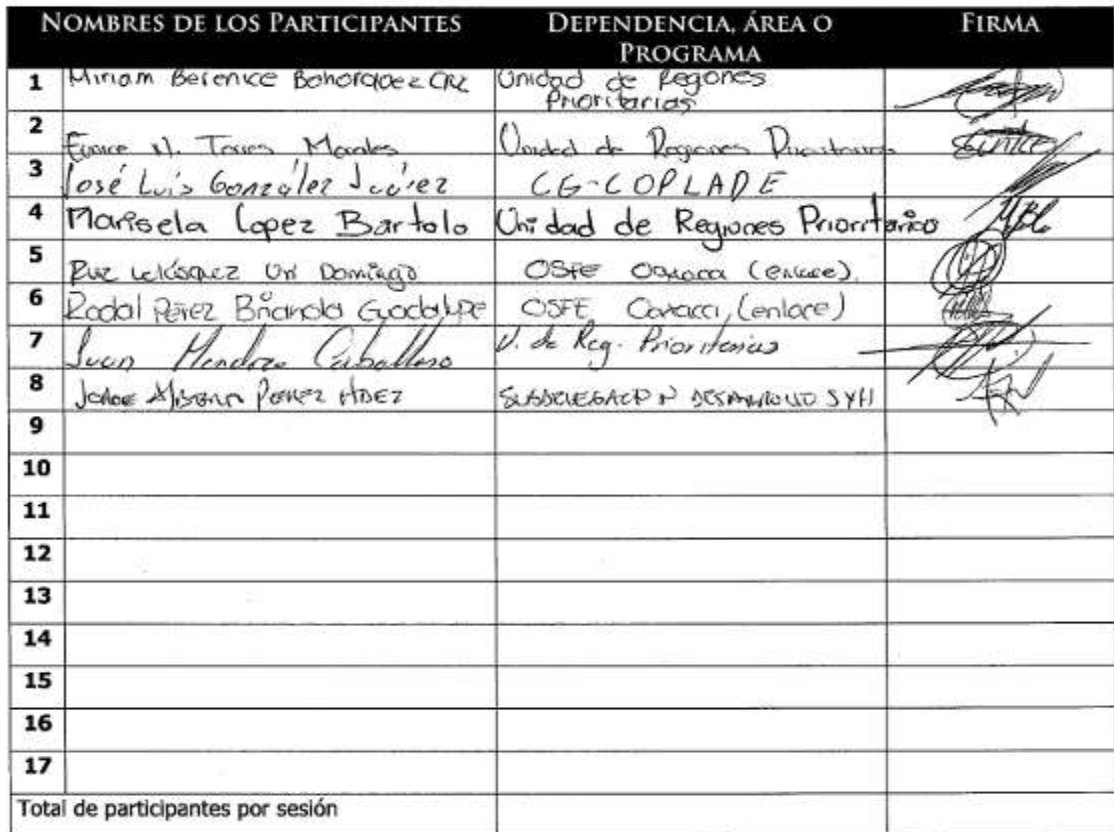 NOMBRES DE LOS PARTICIPANTES DEPENDENCIA, ÁREA O PROGRAMA FIRMA
1 Miriam Berenice Bohorquez Cruz Unidad de Regiones Prioritarias
2 Eunice N. Torres Morales Unidad de Regiones Prioritarias
3 José Luis González Juárez CG-COPLADE
4 Marisela Lopez Bartolo Unidad de Regiones Prioritarias
5 Ruiz Velásquez Uri Domingo OSFE Oaxaca (enlace).
6 Pérez Guadalupe OSFE Oaxaca, (enlace)
7 Juan Mendoza Caballero U. de Reg. Prioritarias
8 PEREZ HDEZ SUBDELEGACION DESARROLLO SYH
9
10
11
12
13
14
15
16
17
Total de participantes por sesión